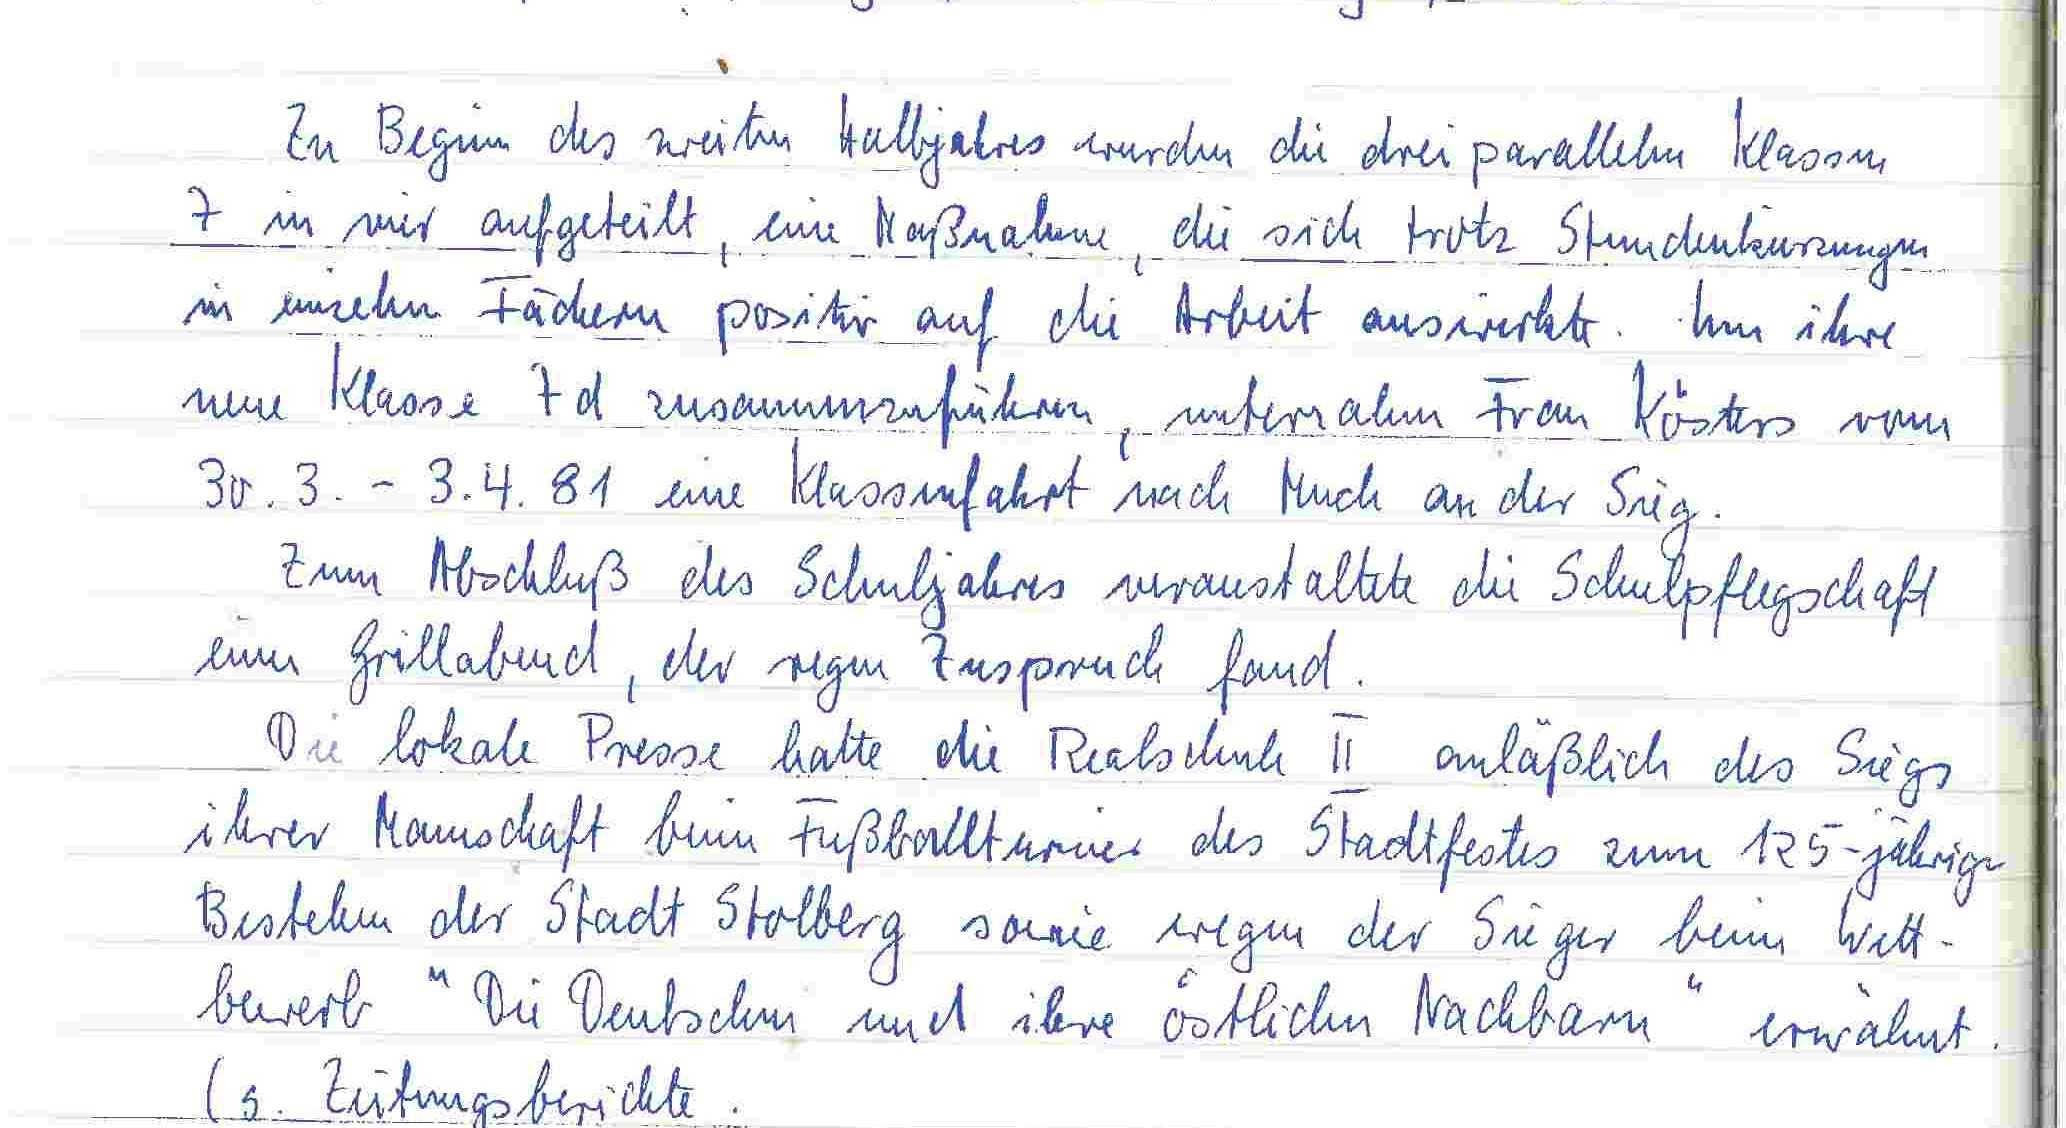 Zu Beginn des zweiten Halbjahres wurden die drei parallelen Klassen
7 in vier aufgeteilt, eine Maßnahme, die sich trotz Stundenkürzungen
in einzeln Fächern positiv auf die Arbeit auswirkte. Um ihre
neue Klasse 7d zusammenzuführen, unternahm Frau Kösters vom
30.3. - 3.4.81 eine Klassenfahrt nach Much an der Sieg.
Zum Abschluß des Schuljahres veranstaltete die Schulpflegschaft
einen Grillabend, der regen Zuspruch fand.
Die lokale Presse hatte die Realschule II anläßlich des Siegs
ihrer Mannschaft beim Fußballturnier des Stadtfestes zum 125-jährigen
Bestehen der Stadt Stolberg sowie wegen der Sieger beim Wett-
bewerb "Die Deutschen und ihre östlichen Nachbarn" erwähnt.
(s. Zeitungsberichte.